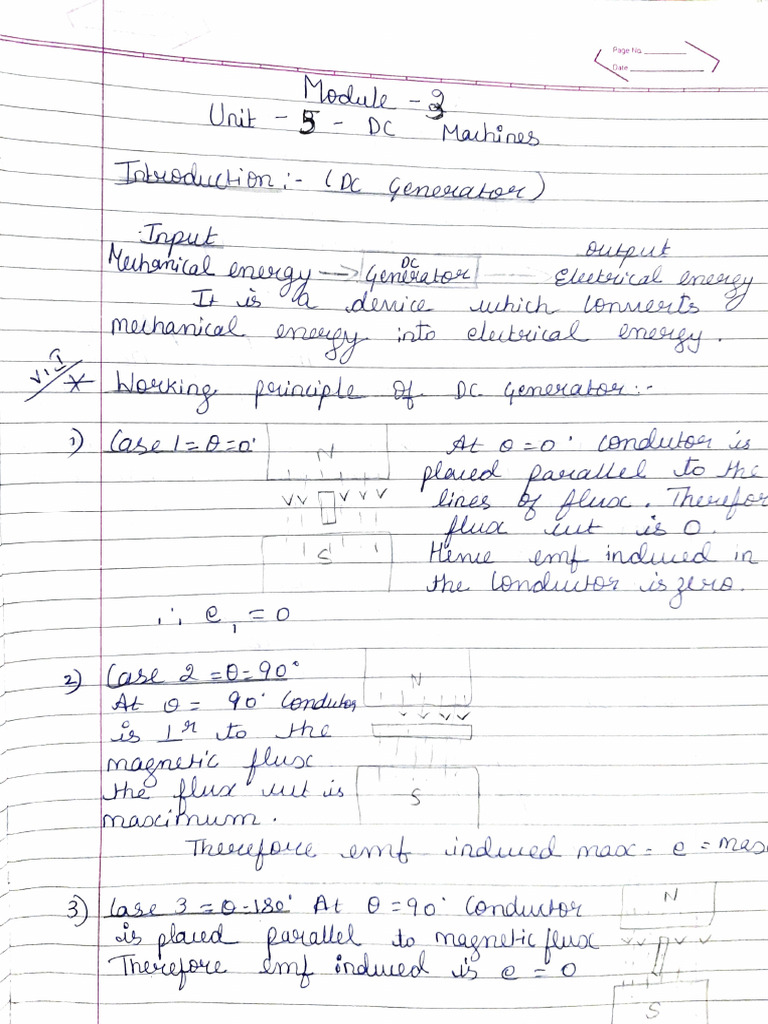 Page No
Date
Module - 3
Unit - 5 - DC Machines
Introduction :- (DC Generator)
Input output
Mechanical energy → DC Generator Electrical energy
It is a device which converts
mechanical energy into electrical energy.
V.I.I * Working principle of DC Generator:-
1) Case 1 = θ = 0°
N
S
At θ = 0° condutor is
placed parallel to the
lines of flux. Therefor
flux cut is 0.
Hence emf induced in
the conductor is zero.
∴ e1 = 0
2) Case 2 = θ = 90°
At θ = 90° Conductor
is ⊥r to the
magnetic flux
the flux cut is
maximum.
N
S
Therefore emf induced max = e = max
3) Case 3 = θ = 180° At θ = 90° Conductor
is placed parallel to magnetic flux
Therefore emf induced is e = 0
N
S